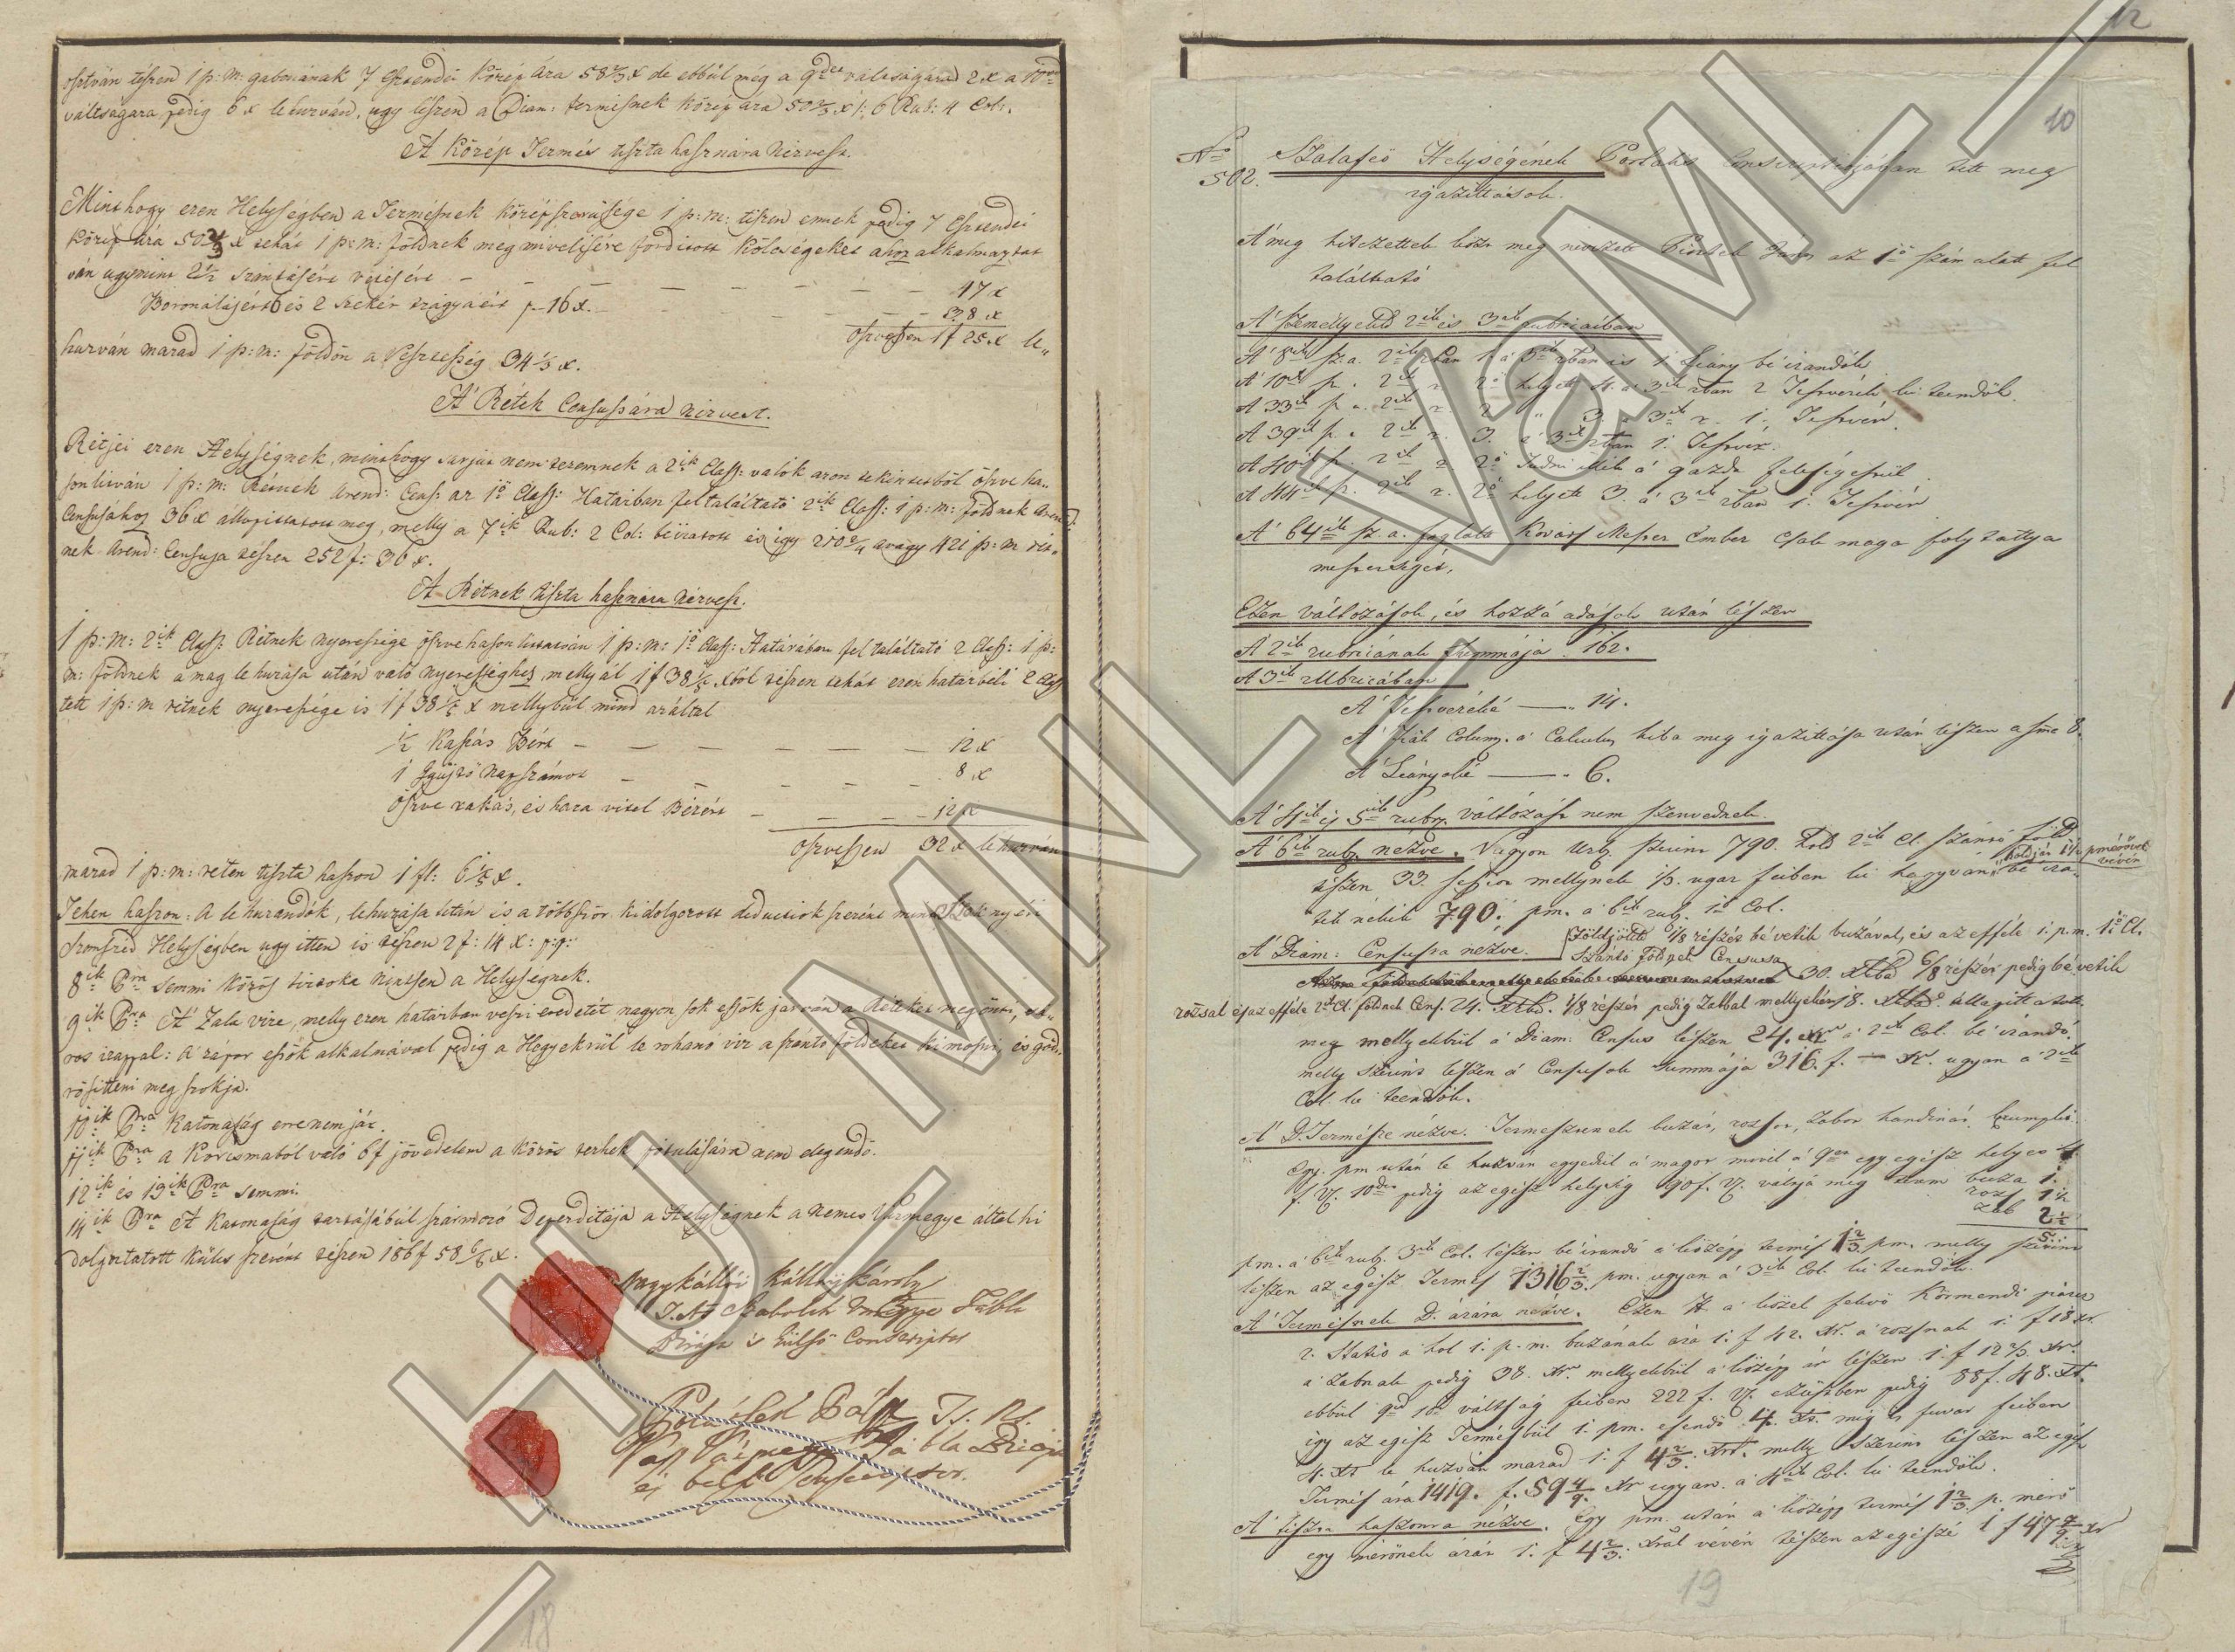 osztván tészen 1 p: m: gabonának 7 Esztendei Közép Ára 58⅔ x de ebbül még a 9
váltságára pedig 6 x le huzván, ugy lészen a Diam: termésnek közép ára 50⅔ x 6 Rub: 4 Col:.
A Közép Termés tiszta hasznára nézvest.
Mint hogy ezen Helységben a Termésnek közép szerüsége 1 p: m: tészen ennek pedig 7 Esztendei
Közép ára 50⅔ x tehát 1 p: m: földnek meg mivelésére fordított Költségeket ahoz alkalmaztat
ván ugymint 2½ szántásért vetésért — 17 x
Boronálásért 6 és 2 szekér trágyáért p 16 x. — 38 x
öszvessen 1 f 25 x le
huzván marad 1 p: m: földön a Vesztesség 34⅓ x.
A' Rétek Censussára nézvest.
Rétjei ezen Helységnek, mint hogy sarjut nem teremnek a 2ik Class: valók azon tekintetböl öszve ha
sonlitván 1 p: m: Rétnek Arend: Cens: az 1ö Class: Határban feltaláltató 2ik Class: 1 p: m: földnek Arend:
Censusához 36 x állapittatott meg, melly a 7ik Rub: 2 Col: béiratott és igy 210 2/4 avagy 421 p: m rét
nek Arend: Censusa tészen 252 f: 36 x.
A Rétnek tiszta hasznára nézvest.
1 p: m: 2ik Class: Rétnek nyeressége öszve hasonlittatván 1 p: m: 1ö Class: Határában fel találtató 2 Class: 1 p:
m: földnek a mag le huzása után való nyereséghez, mellyál 1 f 38 ból tészen tehát ezen határbéli 2 Class
tett 1 p: m rétnek nyeressége is 1 f 38 x mellybül mind azáltal
½ Kaszás Bért — 12 x
1 Gyüjtö Napszámot — 8 x
Öszve rakás, és haza vitel Béért — 12 x
öszvessen 32 x le huzván
marad 1 p: m: réten tiszta haszon 1 fl: 6 x.
Tehen haszon: A le huzandók, lehuzása után is a többször kidolgozott deductiok szerént mint
Helységben ugy itten is tészen 2 f: 14 x:
8ik Pra semmi Közös birtoka nintsen a Helységnek.
9ik Pra A' Zala vize, melly ezen határban veszi eredetét nagyon sok essök járván a Réteket meg önti,
ros iszappal: A zápor essök alkalmával pedig a Hegyekrül le rohanó viz a szántó földeket ki mosni, és göd
rösitteni meg szokja.
10ik Pra Katonaság erre nem jár.
11ik Pra a Korcsmából való 6 f jövedelem a közös terhek pótulására nem elegendö.
12ik és 13ik Pra semmi.
14ik Pra A' Katonaság tartásábúl származó Deperditája a Helységnek a nemes Vármegye által ki
dolgoztatott Kulcs szerént tészen 186 f 58 x.
Nagykállói Kállay Károly
T. N. Szabolch Vármegye Tábla
Birája és Külsö Conscriptor
Bálás T. N.
Vas Vármegye Tábla Birája
és belső Conscriptor.
18
12
10
No 502.
Szalafeö Helységének Portalis Conscriptiojában tett meg
igazittások.
A' meg hitezettek közt meg nevezett Pintek János az 1ö szám alatt fel
található
A' személlyekrül 2ik és 3ik rubricaiban
A' 8ik sz. a. 2ik rban 1. a' 3ik rban is 1. Leány bé irandók
A' 10ik sz. 2ik r. 2ö helyett 4. a' 3ik rban 2 Testvérek ki teendök.
A' 33ik sz a. 2ik r. 2 " 3 a' 3ik r. 1. Testvér.
A' 39ik sz. 2ik r. 3. a' 3ik rban 1. Testvér.
A' 40ik sz. 2ik r. 2ö a' gazda feleségestül
A' 44ik sz. 2ik r. 2ö helyett 3. a' 3ik rban 1. Testvér
A' 64ik sz. a. foglalt Kovács Mester Ember csak maga folytattya
mesterségét.
Ezen változások, és hozzá adások után lészen
A' 2ik rubricának Summája 162.
A' 3ik rubricában
A' Testvéreké — 14.
A' Fiak Columna. a' Calculus hiba meg igazittása után lészen a sme 8.
A' Leányoké — 6.
A' 4ik és 5ik rubr. változást nem szenvednek.
A' 6ik rubr. nézve. Vagyon Urb. szerint 790. hold 2ik Cl. szántó föld
holdját 1½ pmérövel vévén
tészen 33. sessiot mellynek ⅓. ugar feiben ki hagyván bé ira
tik nékik 790. pm. a' 6ik rub. 1ö Col.
A' Diam: Censusra nézve. Földjöket 1/8 részét bé vetik buzával, és az efféle 1. p. m. 1ö Cl.
Szántó Földnek Censusa 30. Xrbd 6/8 részét pedig bé vetik
rozsal és az efféle 2ik Cl. földnek Cens. 24. Xrbd. 1/8 részét pedig Zabbal mellyeként 18. Xrbd. állapittatott
meg mellyekbül a' Diam: Census lészen 24. xr a' 2ik Col. bé irandó.
melly szerint lészen a' Censusok Summája 316. f. — Xr. ugyan a' 2ik
Col. ki teendök.
A' D. Termésre nézve. Termesztenek buzát, rozsot, zabot hardinát, krumplit.
Egy. pm után le huzván egyedül a' magot mivel a' 9ed egy egész helyes 4.
f. V. 10der pedig az egész helység 90 f. V. váltja még marad buza 1.
rozs 1½
zab 2½
5.
pm. a' 6ik rub. 3ik Col. lészen bé irandó a' középp termés 1⅔ pm. melly szerint
lészen az egész Termés 1316⅔. pm. ugyan a' 3ik Col. ki teendök.
A' Termésnek D. árára nézve. Ezen H. a' közel fekvö Körmendi piacra
2. Statio a hol 1. p. m. buzának ára 1. f 42. Xr. a' rozsnak 1. f 18 xr.
a' zabnak pedig 38. Xr. mellyekbül a' középp ár lészen 1. f 12⅔. Xr.
ebbül 9ed 10d váltság feiben 222 f. V. ezüstben pedig 88 f. 48. Xr.
igy az egész Termésbül 1. pm. esendö 4. Xr. még a' fuvar feiben
4. Xr le huzván marad 1. f 4⅔. Xr. melly szerint lészen az egész
Termés ára 1419. f. 59 4/9. Xr ugyan a' 4ik Col. ki teendök.
A' tiszta haszonra nézve. Egy pm. után a' középp termés 1⅔. p. mérö
egy mérönek árát 1. f 4⅔. Xrál vévén tészen az egészé 1 f 47 7/9. xr
19